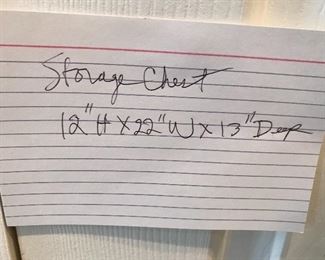 Storage Chest
12"H X 22"W X 13"Deep